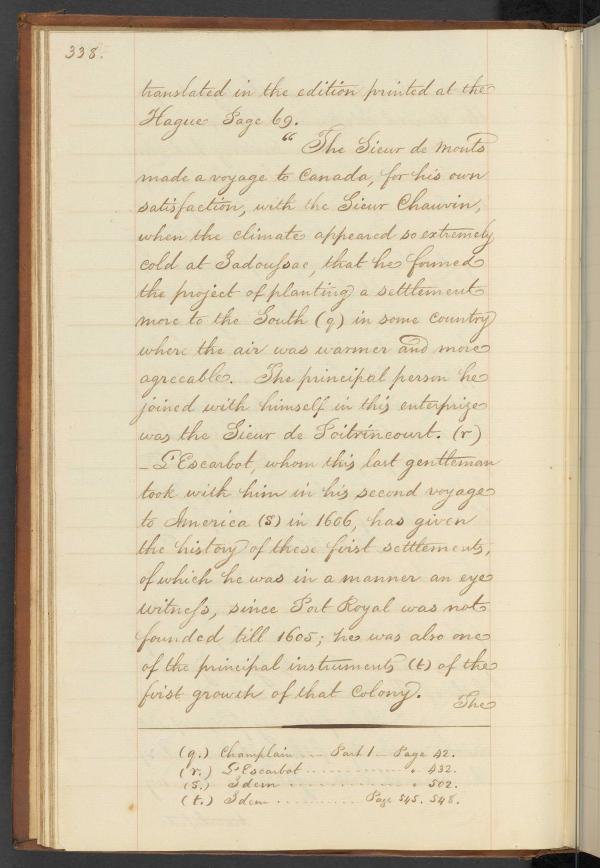 338.
translated in the edition printed at the
Hague Page 69.
“ The Sieur de Monts
made a voyage to Canada, for his own
satisfaction, with the Sieur Chauvin,
when the climate appeared so extremely
cold at Tadoussac, that he formed
the project of planting a settlement
more to the South (q) in some country
where the air was warmer and more
agreeable. The principal person he
joined with himself in this enterprize
was the Sieur de Poitrincourt. (r)
– L'Escarbot, whom this last gentleman
took with him in his second voyage
to America (s) in 1606, has given
the history of these first settlements,
of which he was in a manner an eye
witness, since Port Royal was not
founded till 1605; he was also one
of the principal instruments (t) of the
first growth of that Colony.
The
(q.) Champlain --- Part 1 – Page 42.
(r.) L'Escarbot ............ " 432.
(s.) Idem ............ " 502.
(t.) Idem ............ Page 545. 548.